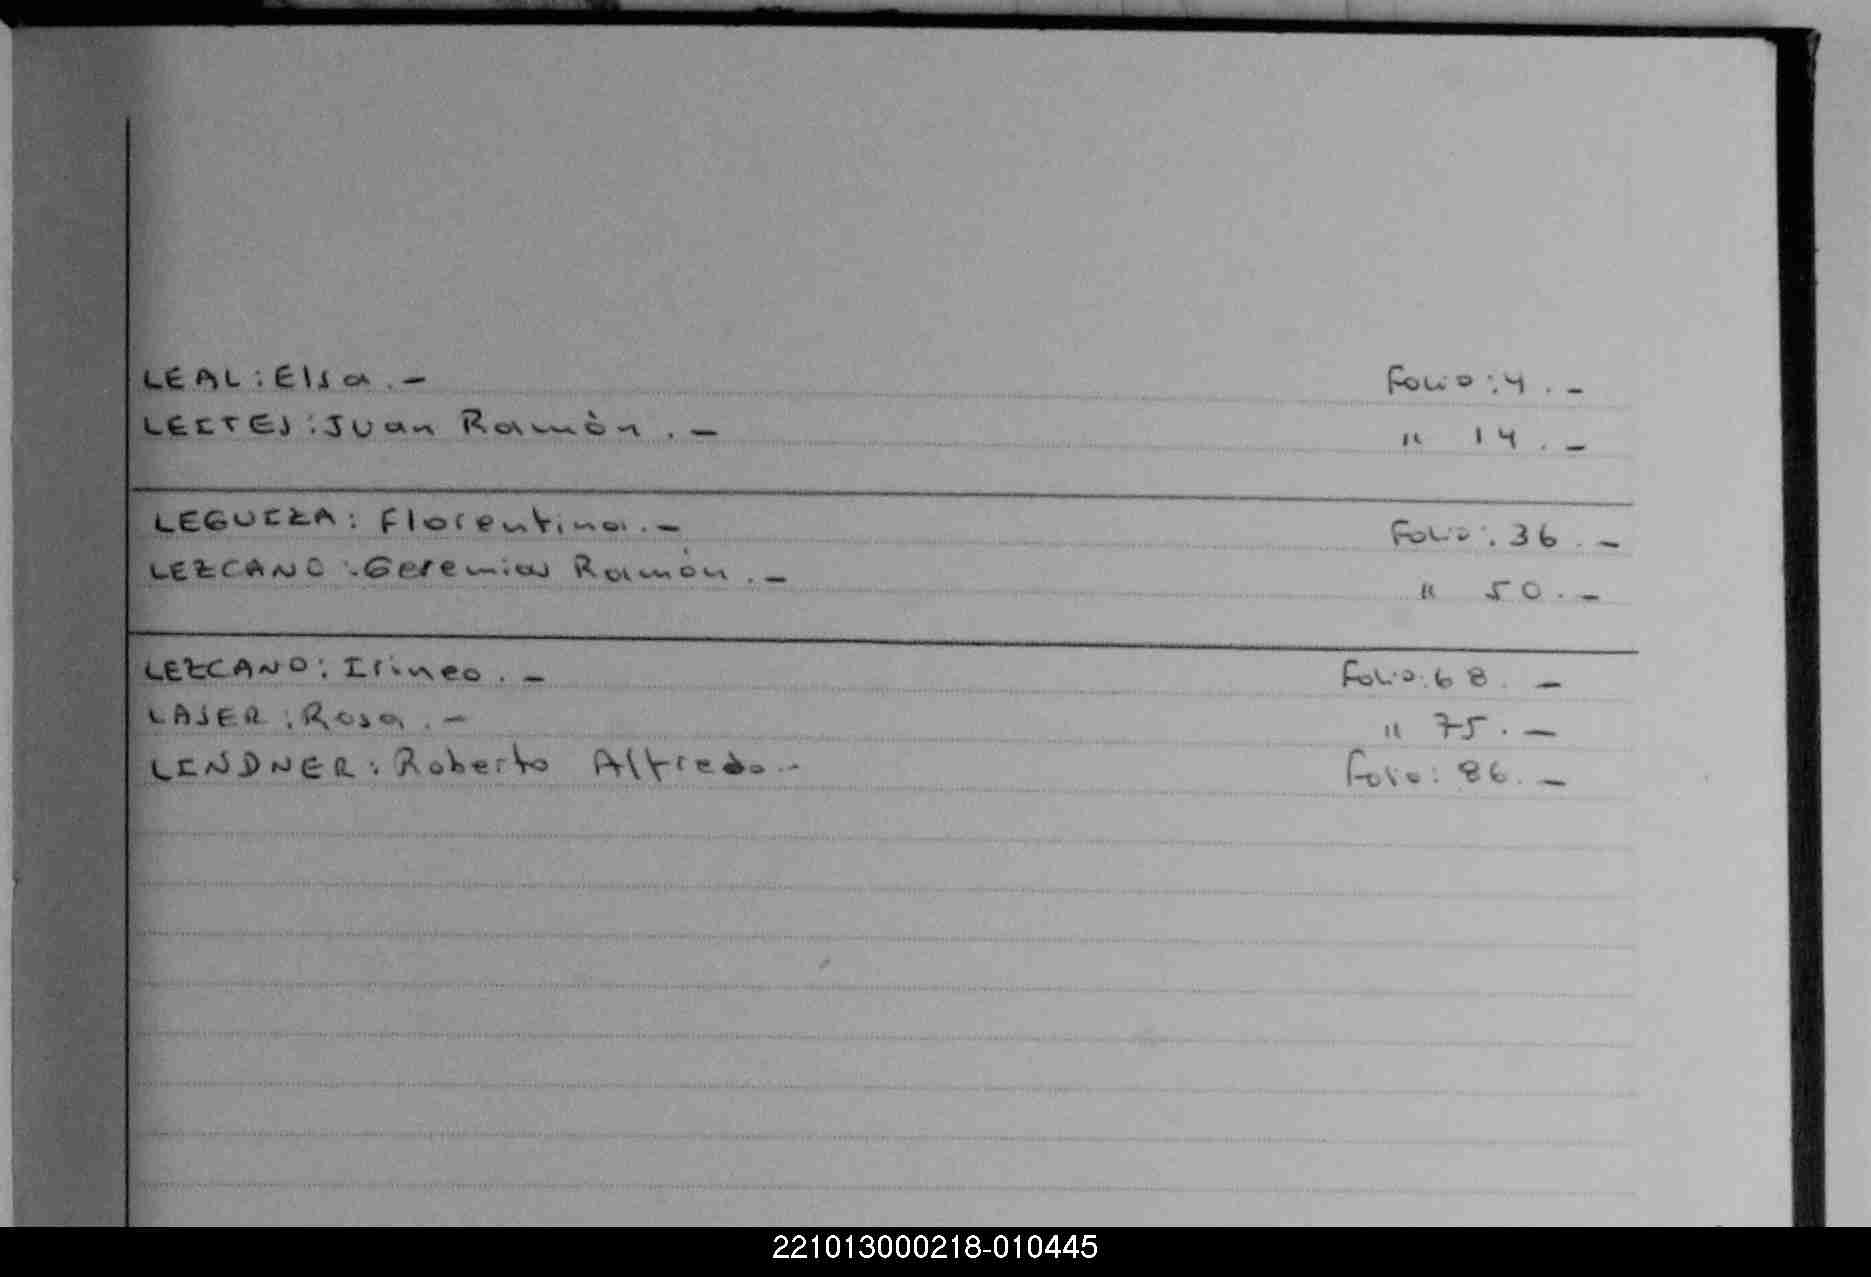 LEAL: Elsa.-    Folio: 4.-
LEITES: Juan Ramòn.-    " 14.-
LEGUIZA: Florentina.-    Folio: 36.-
LEZCANO: Geremias Ramón.-    " 50.-
LEZCANO: Irineo.-    Folio: 68.-
LASER: Rosa.-    " 75.-
LINDNER: Roberto Alfredo.-    Folio: 86.-
221013000218-010445